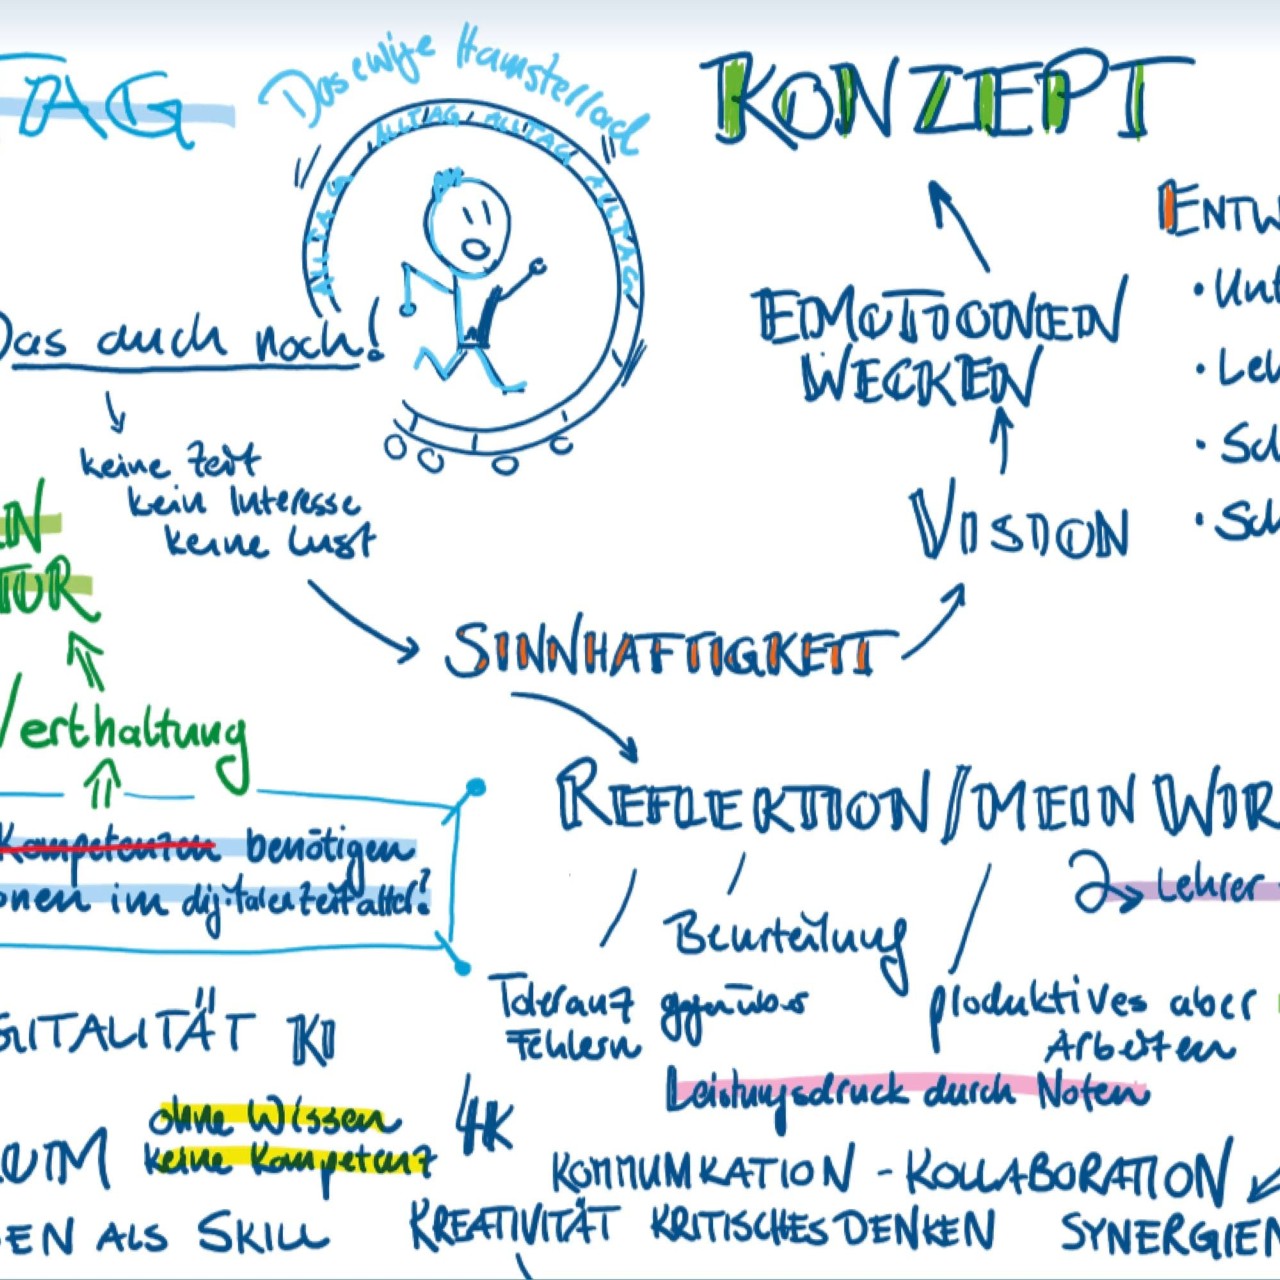 TAG
Das ewige Hamsterrad
ALLTAG ALLTAG ALLTAG ALLTAG
KONZEPT
ENTW
• Unt
• Leh
• Sch
• Sch
EMOTIONEN
WECKEN
VISION
Das auch noch!
keine Zeit
kein Interesse
keine Lust
EN
TUR
SINNHAFTIGKEIT
Werthaltung
Kompetenzen benötigen
onen im digitalen Zeitalter?
REFLEKTION/MEIN WIR
Lehrer
Beurteilung
Toleranz gegenüber
Fehlern
produktives aber
Arbeiten
Leistungsdruck durch Noten
GITALITÄT KI
ohne Wissen
keine Kompetenz
4K
UM
KOMMUNIKATION - KOLLABORATION
KREATIVITÄT KRITISCHES DENKEN
SYNERGIEN
EN ALS SKILL